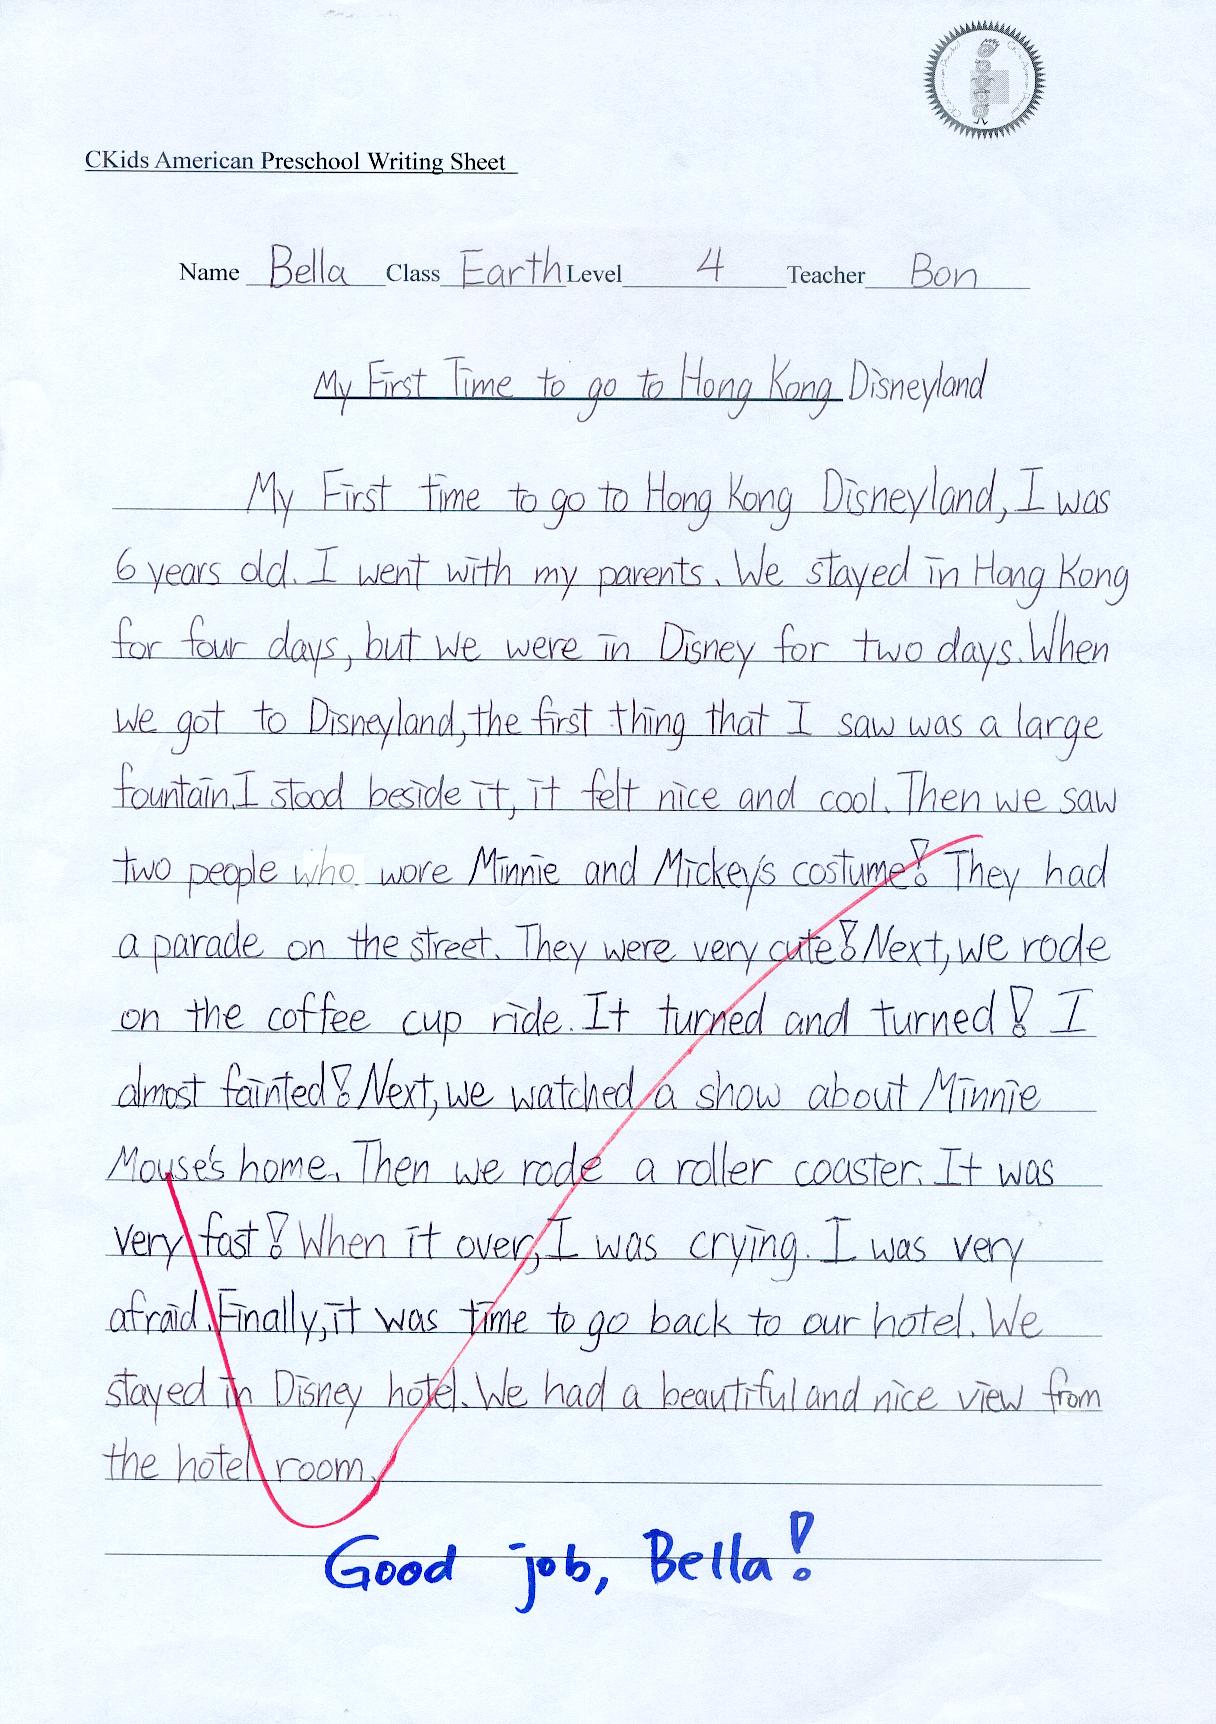 CKids American Preschool Writing Sheet
Name Bella Class Earth Level 4 Teacher Bon
My First Time to go to Hong Kong Disneyland
My First time to go to Hong Kong Disneyland, I was
6 years old. I went with my parents. We stayed in Hong Kong
for four days, but we were in Disney for two days. When
we got to Disneyland, the first thing that I saw was a large
fountain. I stood beside it, it felt nice and cool. Then we saw
two people who wore Minnie and Mickey's costume! They had
a parade on the street. They were very cute! Next, we rode
on the coffee cup ride. It turned and turned! I
almost fainted! Next, we watched a show about Minnie
Mouse's home. Then we rode a roller coaster. It was
very fast! When it over, I was crying. I was very
afraid. Finally, it was time to go back to our hotel. We
stayed in Disney hotel. We had a beautiful and nice view from
the hotel room.
Good job, Bella!